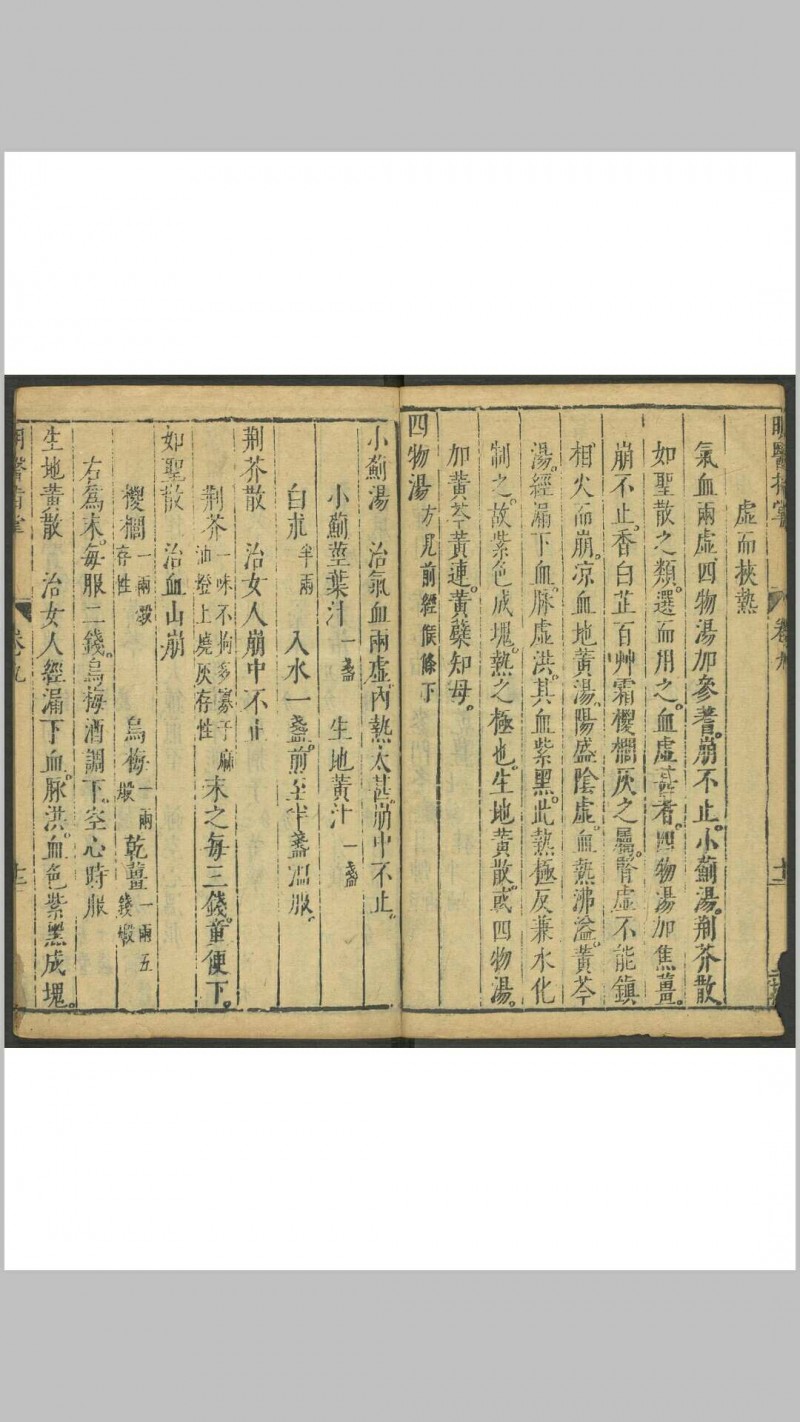 明醫指掌 卷九 十二
虛而挾熱
氣血兩虛四物湯加參蓍。崩不止。小薊湯。荆芥散。
如聖散之類。選而用之。血虛甚者。四物湯加焦薑。
崩不止。香白芷百艸霜椶櫚灰之屬。腎虛不能鎮
相火而崩。凉血地黄湯。陽盛陰虛。血熱沸溢。黄芩
湯。經漏下血。脉虛洪。其血紫黑。此熱極反兼水化
制之。故紫色成塊。熱之極也。生地黄散。或四物湯。
加黄芩黄連。黄蘗知母。
四物湯 方見前經候條下
小薊湯 治氣血兩虛。內熱太甚。崩中不止。
小薊莖葉汁 一盞 生地黄汁 一盞
白朮 半兩 入水一盞。煎至半盞。温服。
荆芥散 治女人崩中不止
荆芥 一味不拘多寡于麻油燈上燒灰存性 末之每三錢。童便下。
如聖散 治血山崩
椶櫚 一兩煅存性 烏梅 一兩煅 乾薑 一兩五錢煅
右為末。每服二錢。烏梅酒調下。空心時服
生地黄散 治女人經漏下血。脉洪。血色紫黑成塊。
明醫指掌 卷九 十二